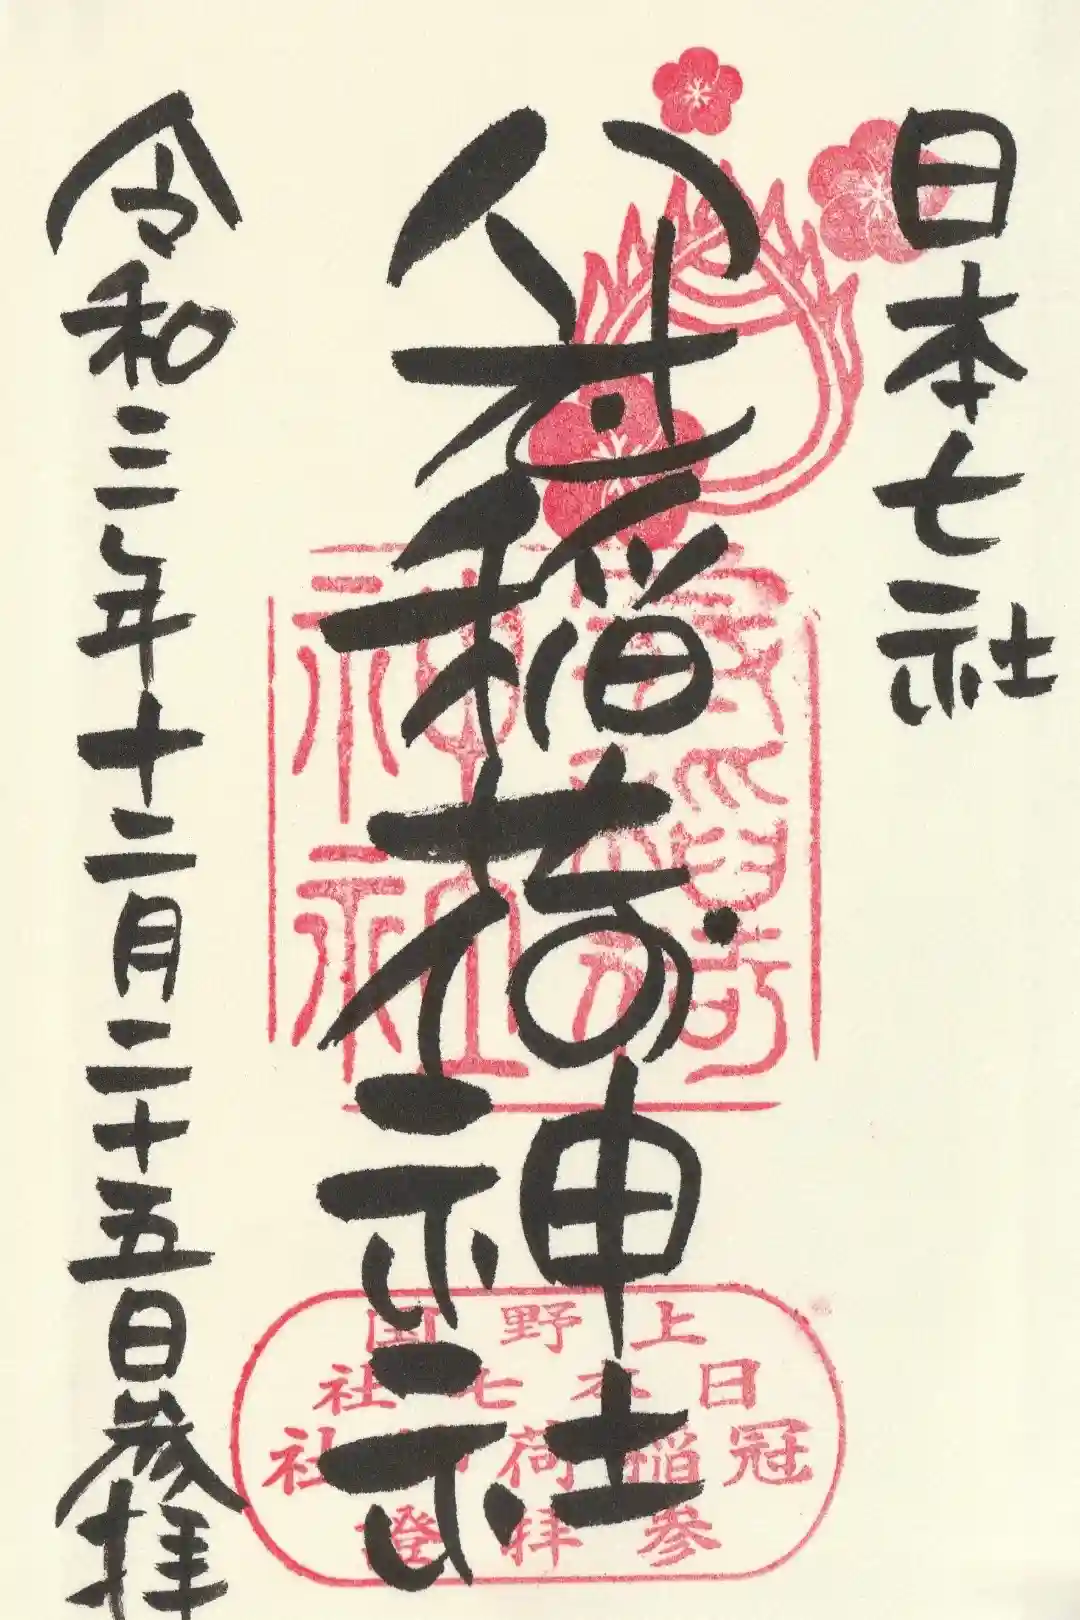 日本七社
冠稲荷神社
令和三年十二月二十五日参拝
上野国
日本七社
冠稲荷神社
参拝證